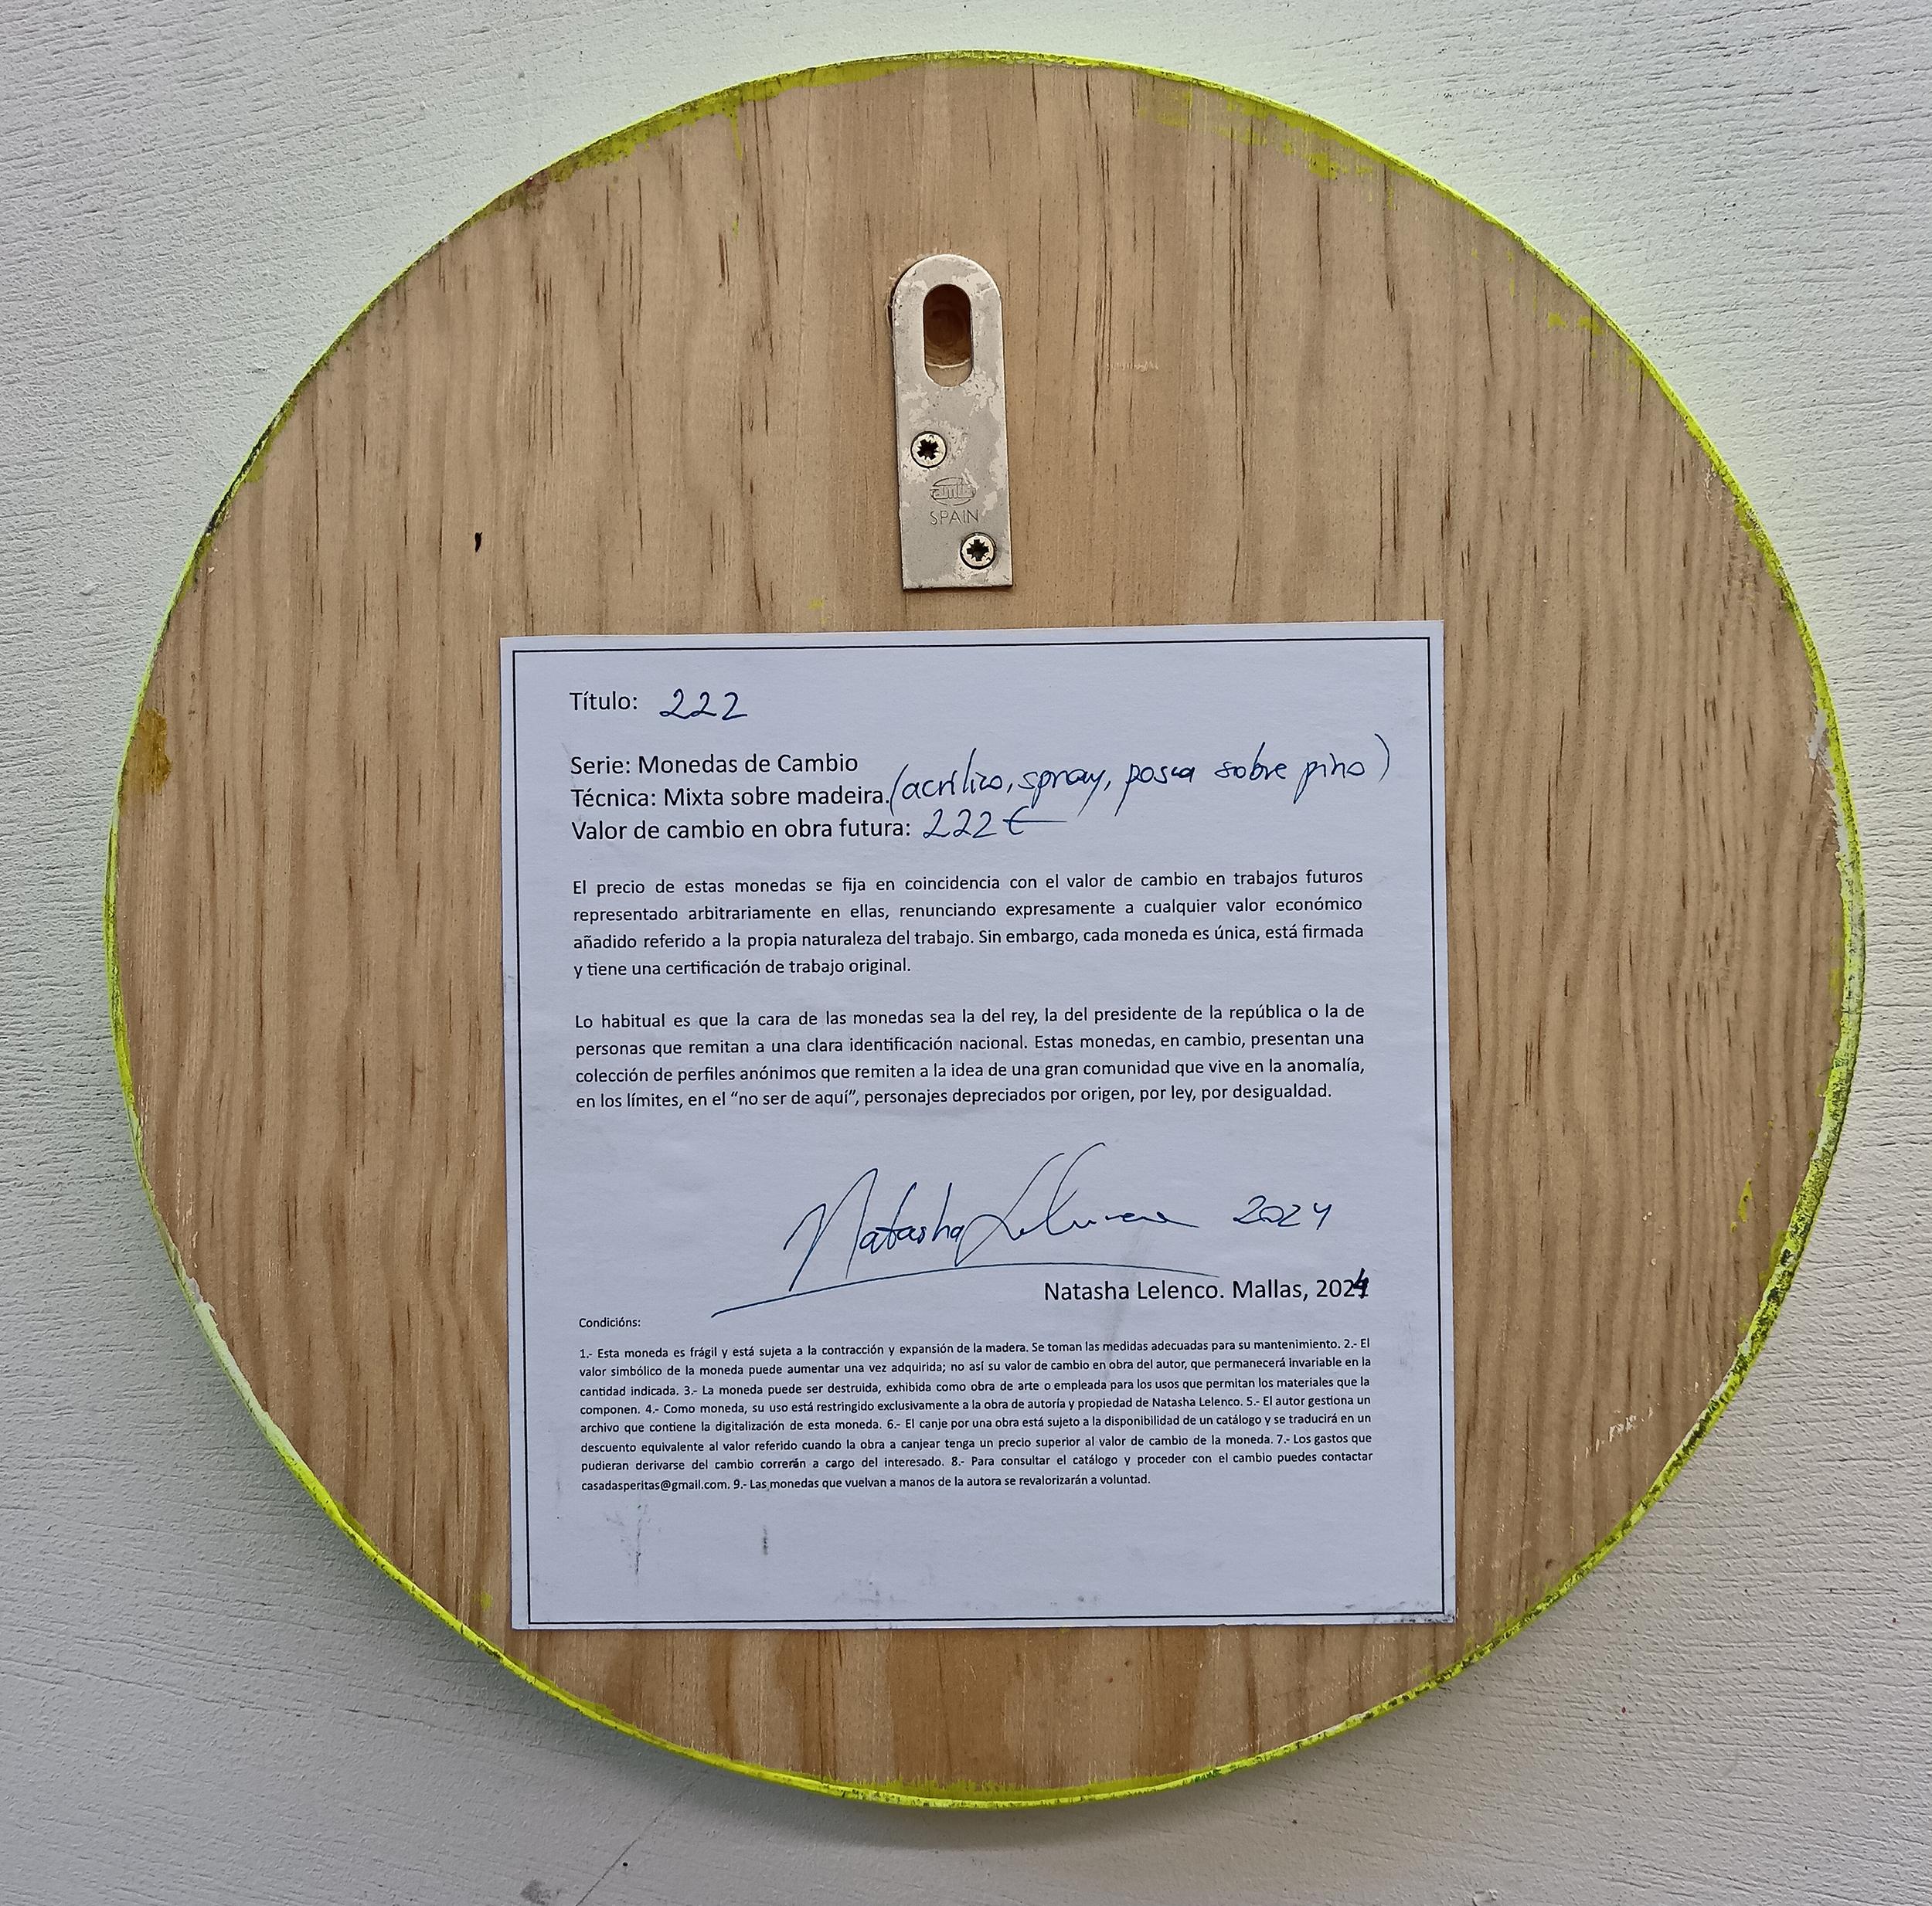 SPAIN
Título: 222
Serie: Monedas de Cambio
Técnica: Mixta sobre madeira. (acrílico, spray, posca sobre pino)
Valor de cambio en obra futura: 222 €
El precio de estas monedas se fija en coincidencia con el valor de cambio en trabajos futuros
representado arbitrariamente en ellas, renunciando expresamente a cualquier valor económico
añadido referido a la propia naturaleza del trabajo. Sin embargo, cada moneda es única, está firmada
y tiene una certificación de trabajo original.
Lo habitual es que la cara de las monedas sea la del rey, la del presidente de la república o la de
personas que remitan a una clara identificación nacional. Estas monedas, en cambio, presentan una
colección de perfiles anónimos que remiten a la idea de una gran comunidad que vive en la anomalía,
en los límites, en el “no ser de aquí”, personajes depreciados por origen, por ley, por desigualdad.
Natasha Lelenco 2024
Natasha Lelenco. Mallas, 2024
Condicións:
1.- Esta moneda es frágil y está sujeta a la contracción y expansión de la madera. Se toman las medidas adecuadas para su mantenimiento. 2.- El
valor simbólico de la moneda puede aumentar una vez adquirida; no así su valor de cambio en obra del autor, que permanecerá invariable en la
cantidad indicada. 3.- La moneda puede ser destruida, exhibida como obra de arte o empleada para los usos que permitan los materiales que la
componen. 4.- Como moneda, su uso está restringido exclusivamente a la obra de autoría y propiedad de Natasha Lelenco. 5.- El autor gestiona un
archivo que contiene la digitalización de esta moneda. 6.- El canje por una obra está sujeto a la disponibilidad de un catálogo y se traducirá en un
descuento equivalente al valor referido cuando la obra a canjear tenga un precio superior al valor de cambio de la moneda. 7.- Los gastos que
pudieran derivarse del cambio correrán a cargo del interesado. 8.- Para consultar el catálogo y proceder con el cambio puedes contactar
casadasperitas@gmail.com. 9.- Las monedas que vuelvan a manos de la autora se revalorizarán a voluntad.